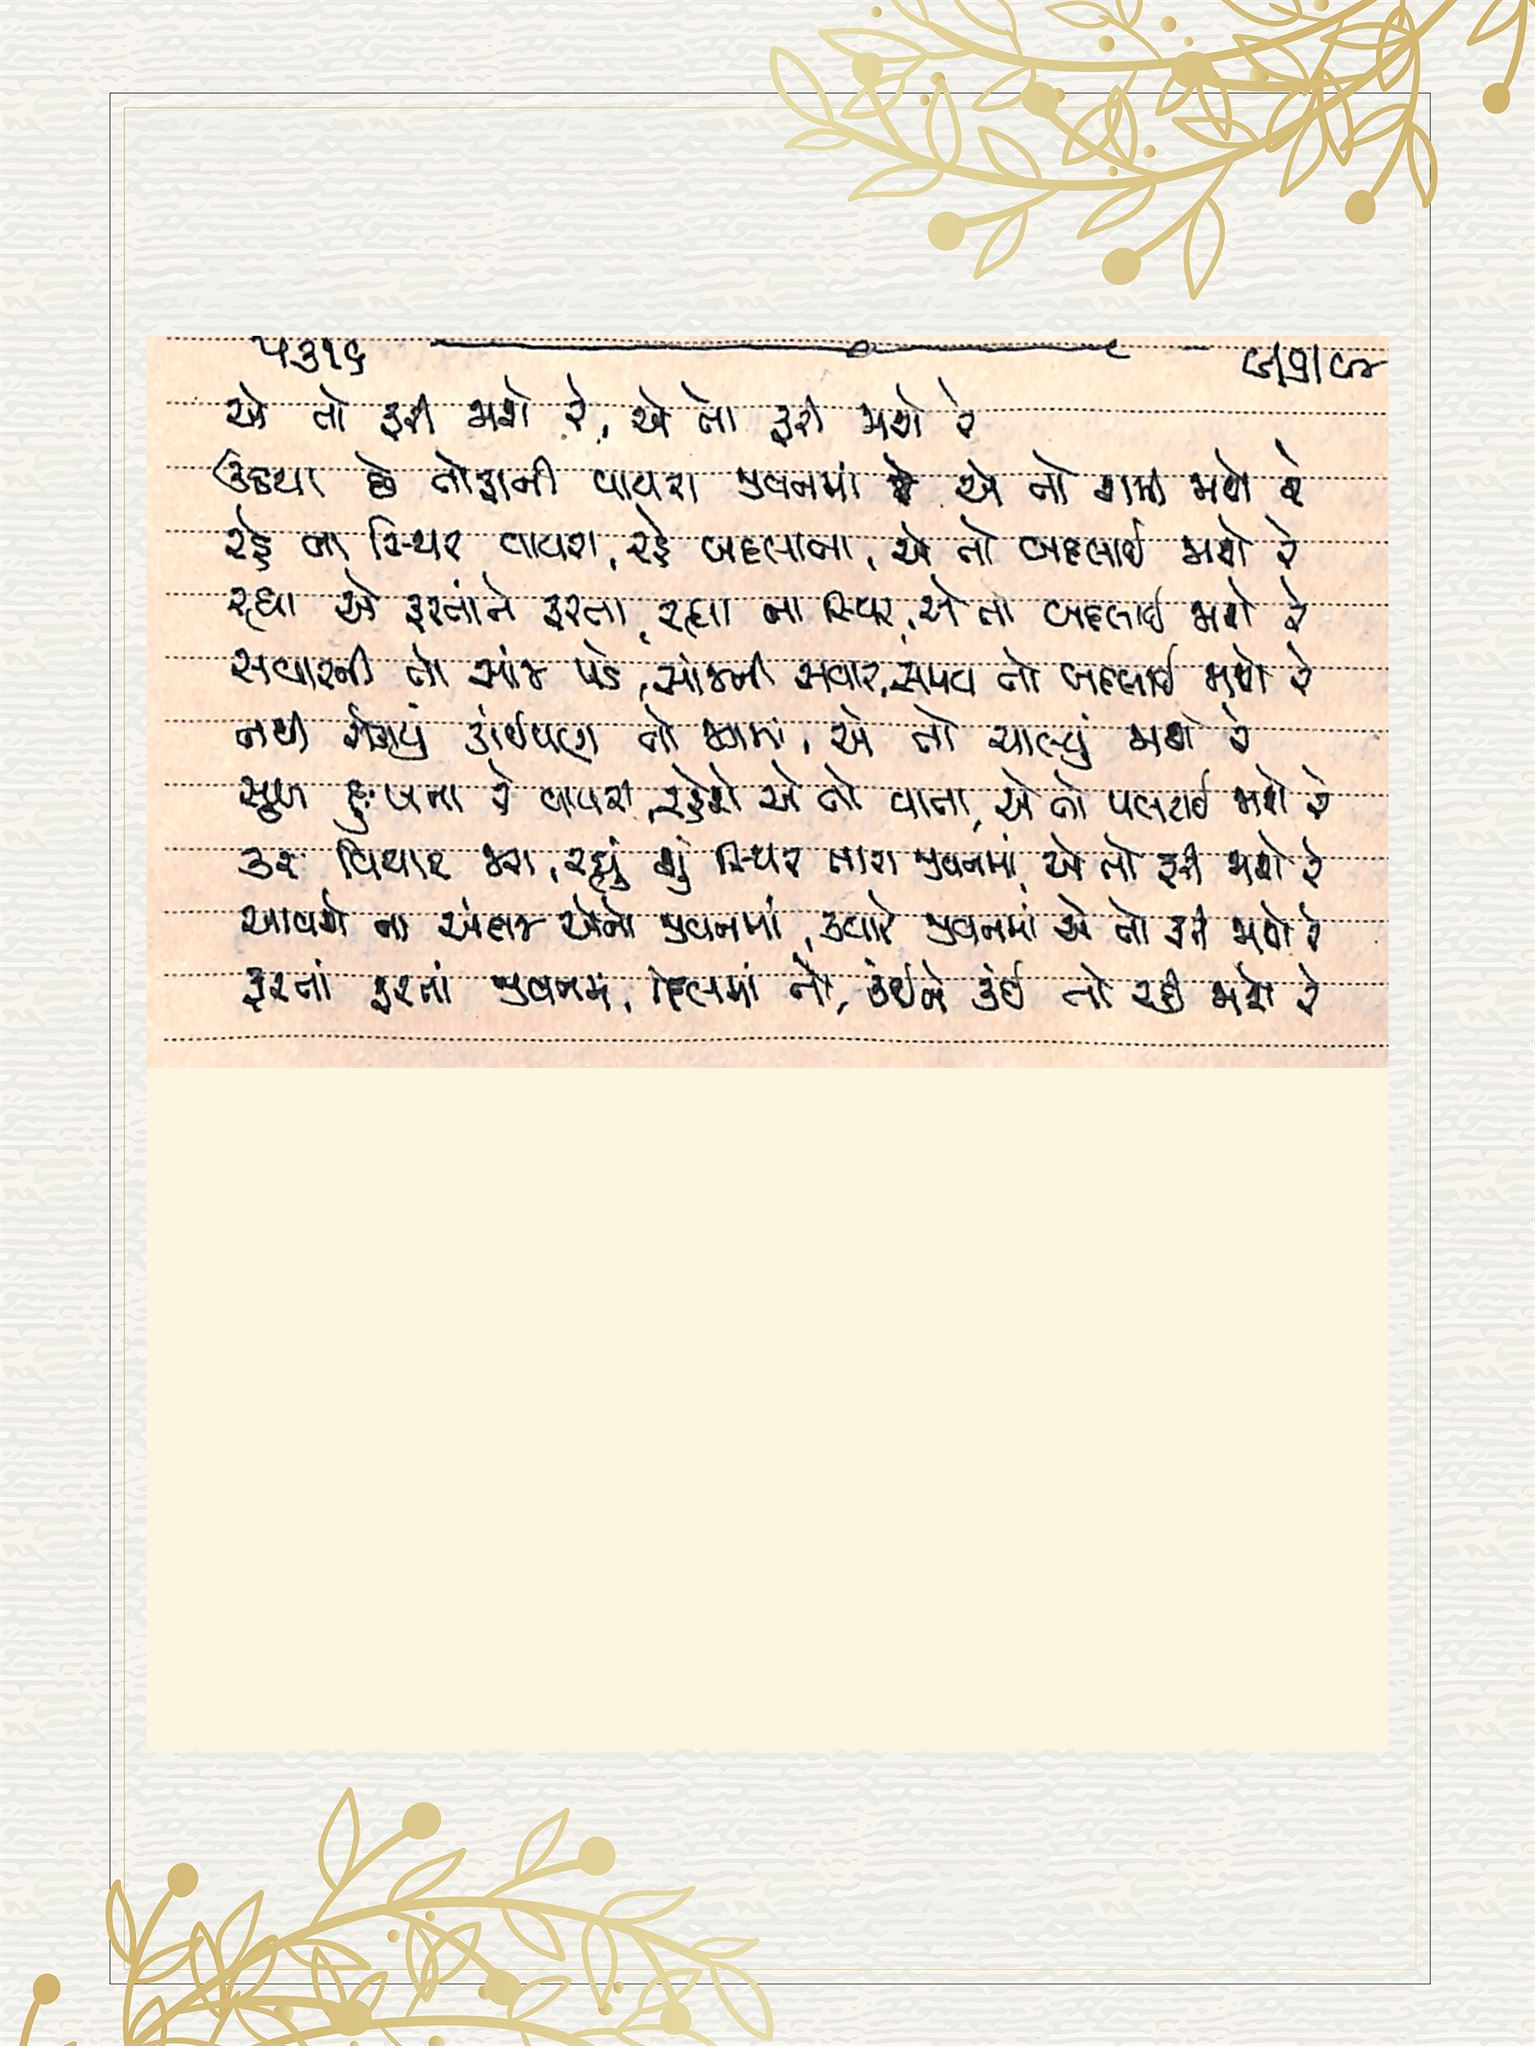 ૫૩૧૬
એ તો ફરી જાશે રે, એ તો ફરી જાશે રે
ઉઠયા છે તોફાની વાયરા જીવનમાં એ તો શમી જાશે રે
રહે ના સ્થિર વાયરા, રહે બદલાતા, એ તો બદલાઈ જાશે રે
રહ્યા એ ફરતાંને ફરતા, રહ્યા ના સ્થિર, એ તો બદલાઈ જાશે રે
સવારની તો સાંજ પડે, સાંજની સવાર, સમય તો બદલાઈ જાશે રે
નથી રોકાયું કાંઈપણ તો જગમાં, એ તો ચાલ્યું જાશે રે
સુખ દુઃખના રે વાયરા, રહેશે એ તો વાતા, એ તો પલટાઈ જાશે રે
કર વિચાર જરા, રહ્યું શું સ્થિર તારા જીવનમાં, એ તો ફરી જાશે રે
આવશે ના અંદાજ એનો જીવનમાં, ક્યારે જીવનમાં એ તો ફરી જાશે રે
ફરતાં ફરતાં જીવનમાં, દિલમાં તો, કંઈને કંઈ તો રહી જાશે રે